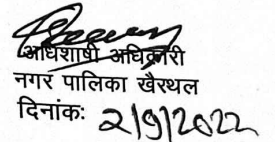 अधिशाषी अधिकारी
नगर पालिका खैरथल
दिनांकः 2/9/2022